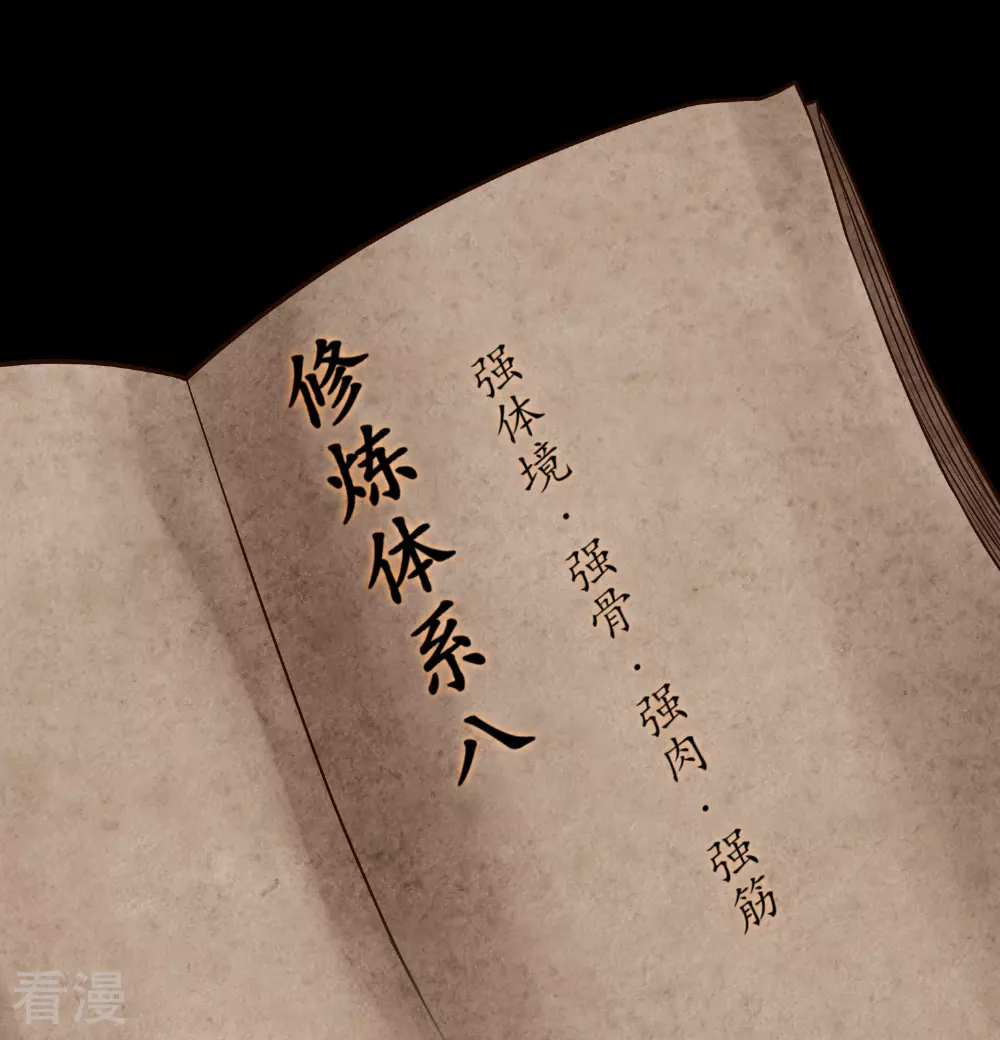 修炼体系八
强体境·强骨·强肉·强筋
看漫